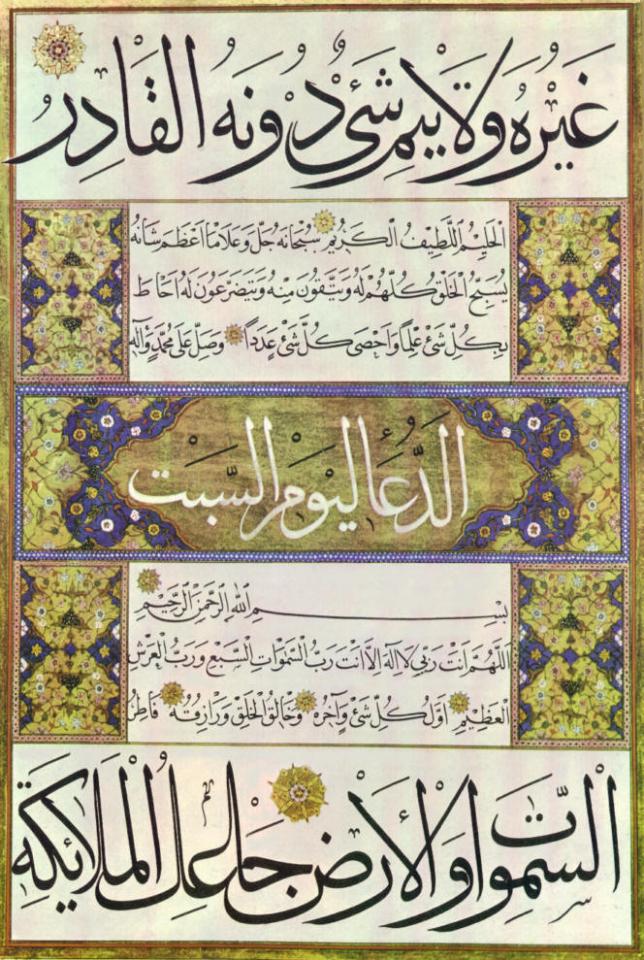 غَيْرُهُ وَلَا يَتِمُّ شَيْءٌ دُونَهُ الْقَادِرُ
الْحَلِيمُ اللَّطِيفُ الْكَرِيمُ سُبْحَانَهُ جَلَّ وَعَلَا مَا اَعْظَمَ شَانَهُ
يُسَبِّحُ الْخَلْقُ كُلُّهُمْ لَهُ وَيَتَّقُونَ مِنْهُ وَيَتَضَرَّعُونَ لَهُ اَحَاطَ
بِكُلِّ شَئٍ عِلْمًا وَاَحْصَى كُلَّ شَئٍ عَدَدًا وَصَلِّ عَلَى مُحَمَّدٍ وَآلِهِ
الدُّعَا لِيَوْمِ السَّبْتِ
بِسْمِ اللهِ الرَّحْمٰنِ الرَّحِيمِ
اَللّٰهُمَّ اَنْتَ رَبِّي لَا اِلٰهَ اِلَّا اَنْتَ رَبُّ السَّمٰوَاتِ السَّبْعِ وَرَبُّ الْعَرْشِ
الْعَظِيمِ اَوَّلُ كُلِّ شَئٍ وَآخِرُهُ وَخَالِقُ الْخَلْقِ وَرَازِقُهُ فَاطِرُ
السَّمٰوَاتِ وَالْأَرْضِ جَاعِلِ الْمَلَائِكَةِ